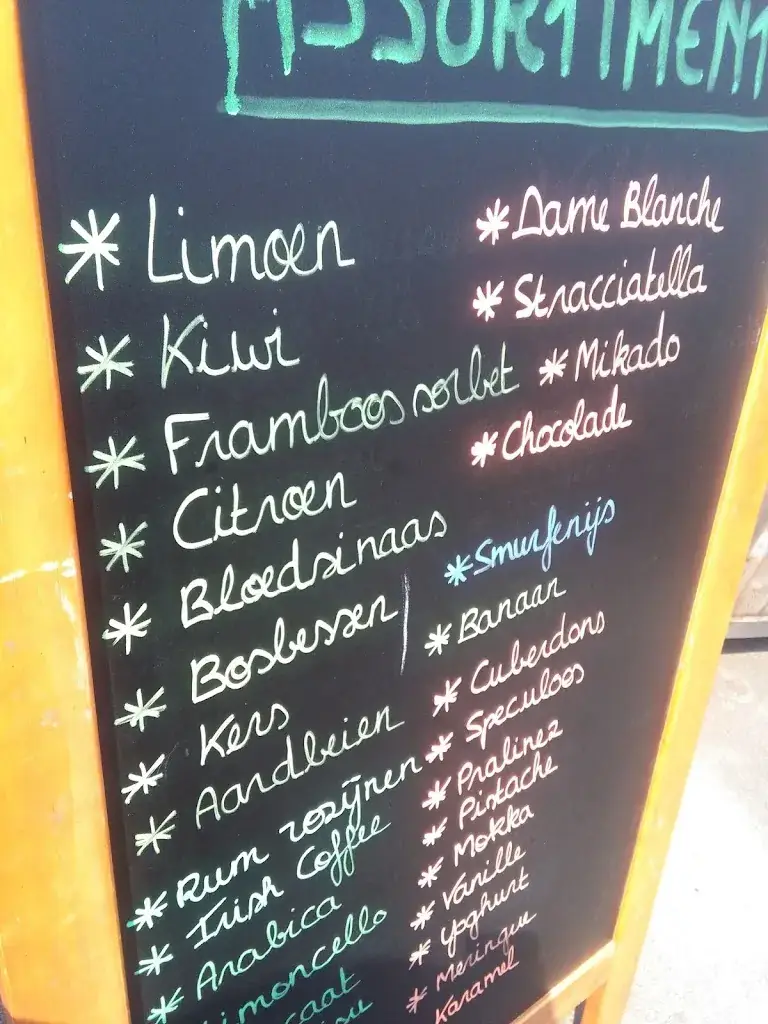 ASSORTIMENT
* Limoen
* Kiwi
* Framboos sorbet
* Citroen
* Bloedsinaas
* Bosbessen
* Kers
* Aardbeien
* Rum rozijnen
* Irish Coffee
* Arabica
Limoncello
* Dame Blanche
* Stracciatella
* Mikado
* Chocolade
* Smurfenijs
* Banaan
* Cuberdons
* Speculoos
* Pralinez
* Pistache
* Mokka
* Vanille
* Yoghurt
* Meringue
* Karamel